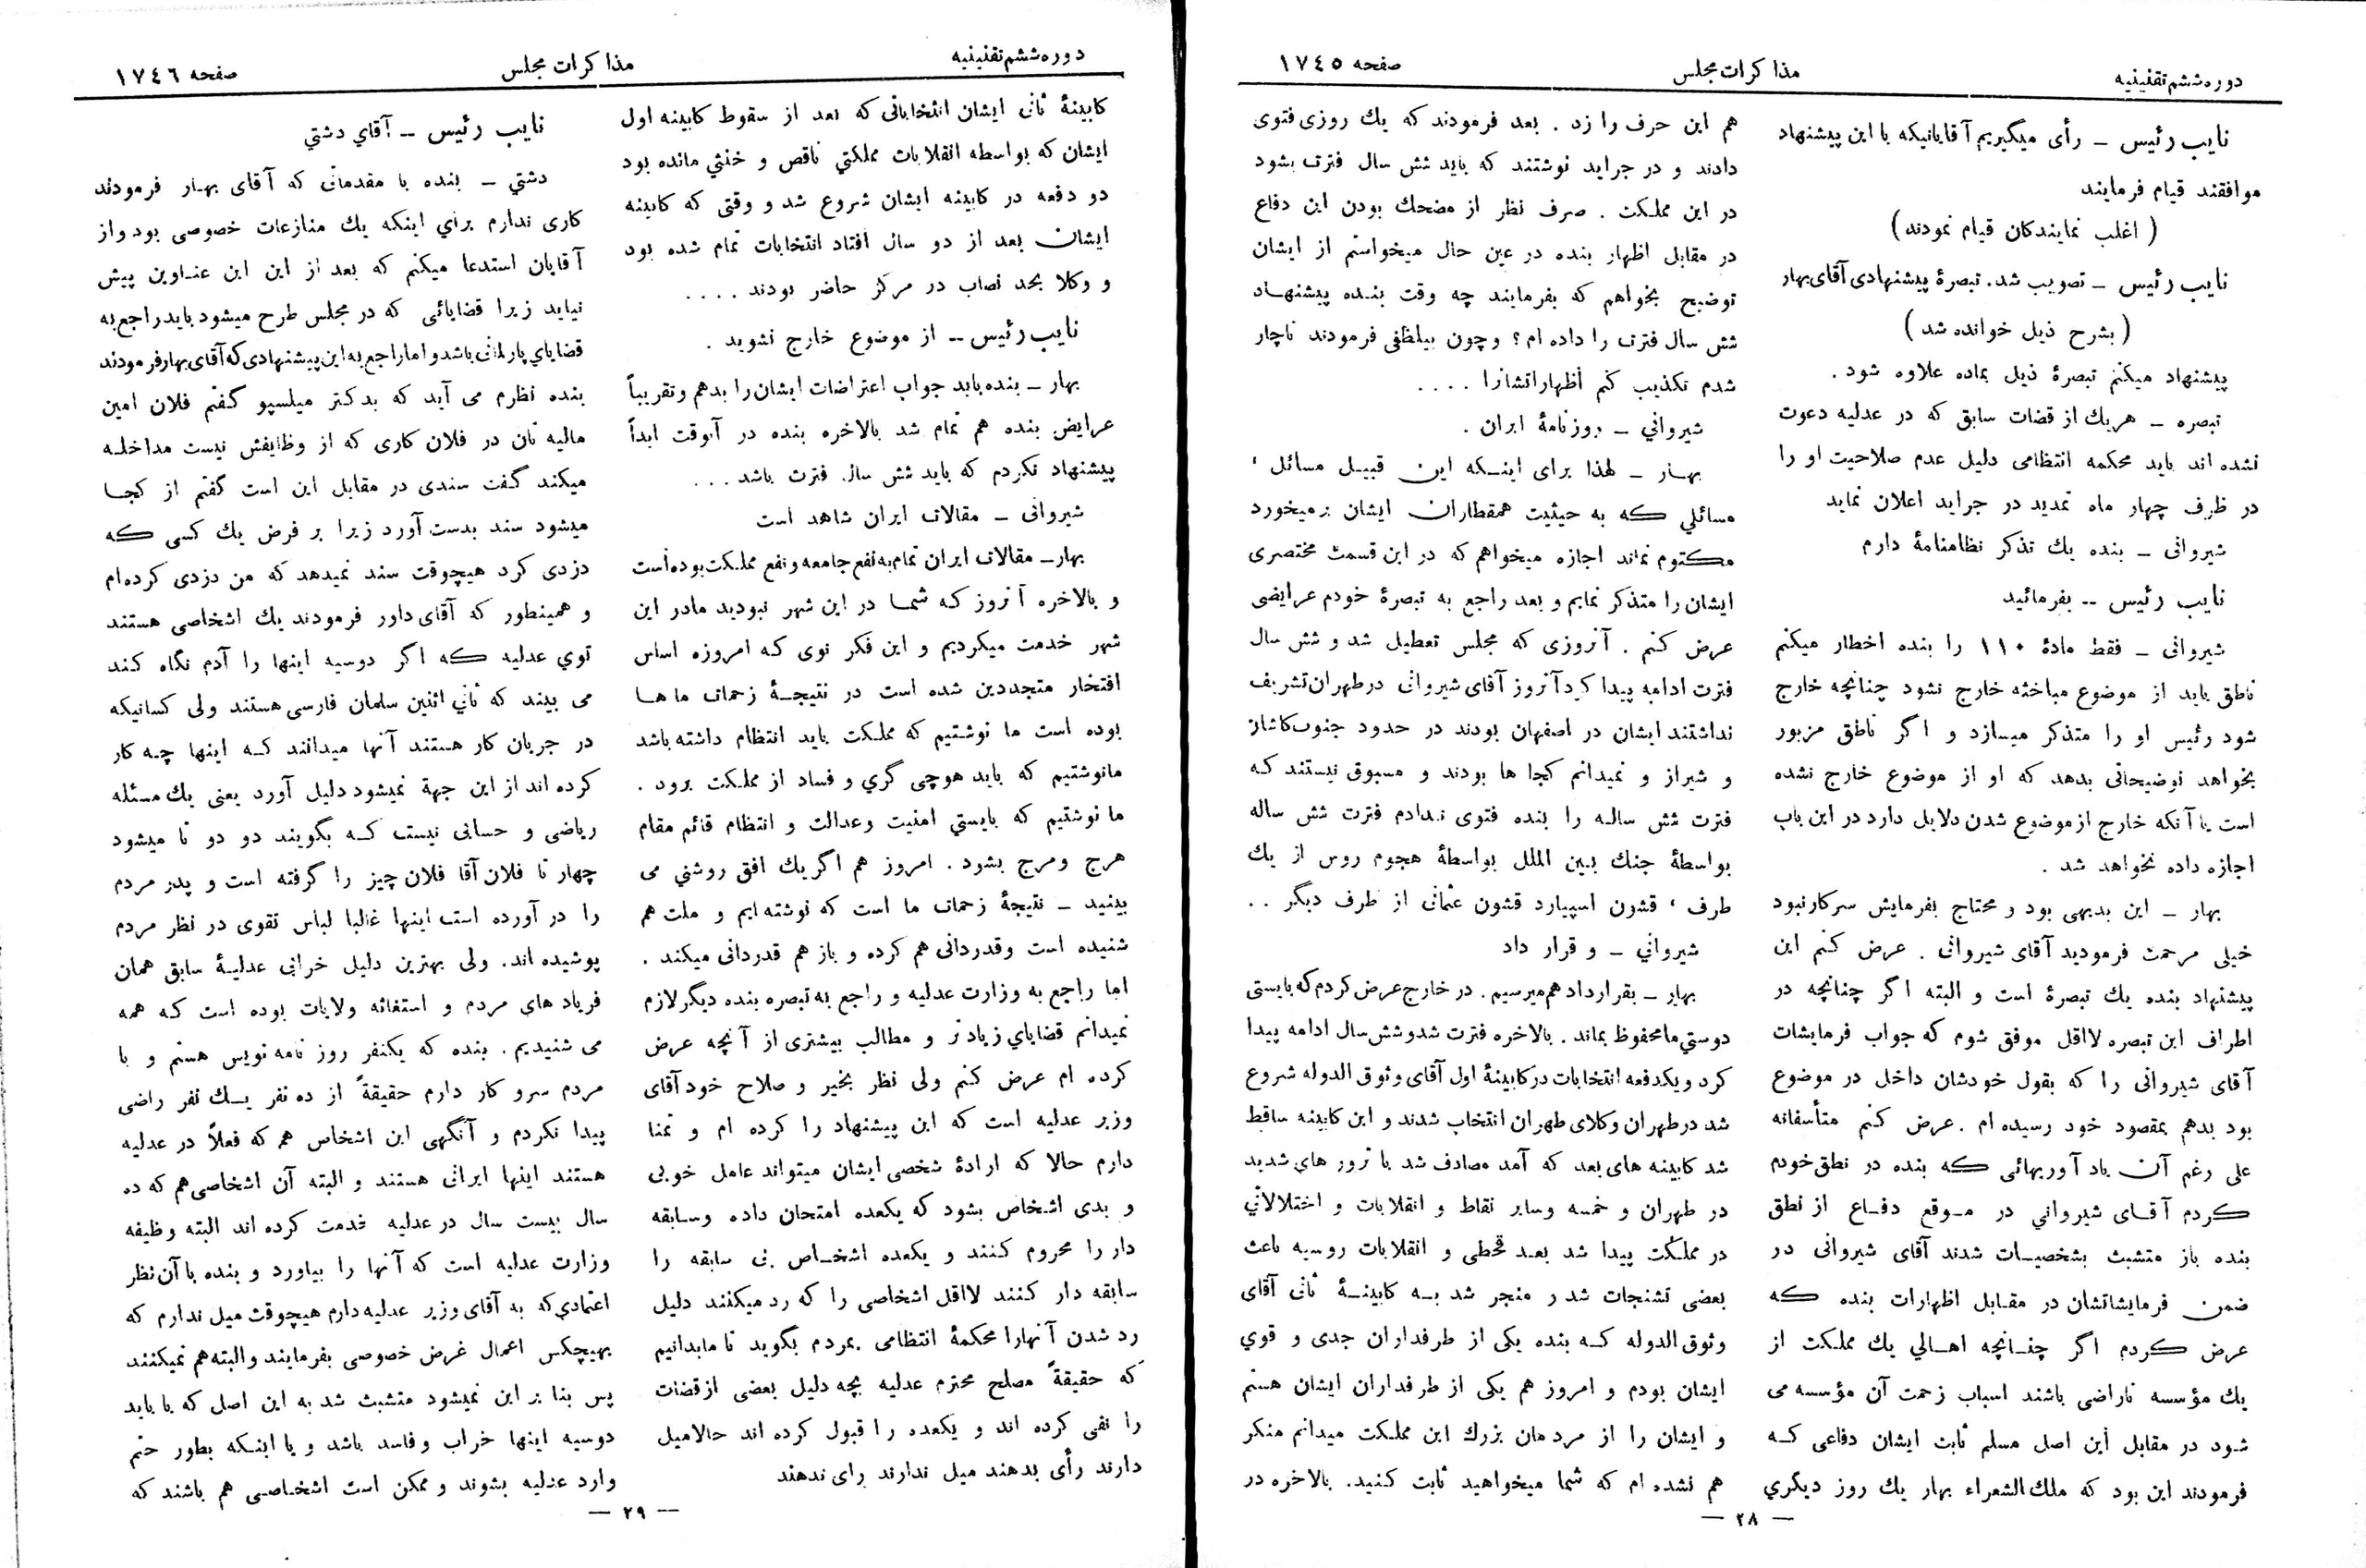 دوره ششم تقنینیه
مذاکرات مجلس
صفحه ۱۷٤٥
نایب رئیس ــ رأی میگیریم آقایانیکه با این پیشنهاد
موافقند قیام فرمایند
( اغلب نمایندکان قیام نمودند )
نایب رئیس ــ تصویب شد. تبصرهٔ پیشنهادی آقای بهار
( بشرح ذیل خوانده شد )
پیشنهاد میکنم تبصرهٔ ذیل بماده علاوه شود .
تبصره ــ هریك از قضات سابق که در عدلیه دعوت
نشده اند باید محکمه انتظامی دلیل عدم صلاحیت او را
در ظرف چهار ماه تمدید در جراید اعلان نماید
شیروانی ــ بنده یك تذکر نظامنامهٔ دارم
نایب رئیس ــ بفرمائید
شیروانی ــ فقط مادهٔ ۱۱۰ را بنده اخطار میکنم
ناطق باید از موضوع مباخثه خارج نشود چنانچه خارج
شود رئیس او را متذکر میسازد و اگر ناطق مزبور
بخواهد توضیحاتی بدهد که او از موضوع خارج نشده
است یا آنکه خارج از موضوع شدن دلایل دارد در این باب
اجازه داده نخواهد شد .
بهار ــ این بدیهی بود و محتاج بفرمایش سرکار نبود
خیلی مرحمت فرمودید آقای شیروانی . عرض کنم این
پیشنهاد بنده یك تبصرهٔ است و البته اگر چنانچه در
اطراف این تبصره لااقل موفق شوم که جواب فرمایشات
آقای شیروانی را که بقول خودشان داخل در موضوع
بود بدهم بمقصود خود رسیده ام . عرض کنم متأسفانه
علی رغم آن یاد آوریهائی که بنده در نطق خودم
کردم آقای شیروانی در موقع دفاع از نطق
بنده باز متشبث بشخصیات شدند آقای شیروانی در
ضمن فرمایشاتشان در مقابل اظهارات بنده که
عرض کردم اگر چنانچه اهالی یك مملکت از
یك مؤسسه ناراضی باشند اسباب زحمت آن مؤسسه می
شود در مقابل این اصل مسلم ثابت ایشان دفاعی که
فرمودند این بود که ملك الشعراء بهار یك روز دیگری
هم این حرف را زد . بعد فرمودند که یك روزی فتوی
دادند و در جراید نوشتند که باید شش سال فترت بشود
در این مملکت . صرف نظر از مضحك بودن این دفاع
در مقابل اظهار بنده در عین حال میخواستم از ایشان
توضیح بخواهم که بفرمایند چه وقت بنده پیشنهاد
شش سال فترت را داده ام ؟ وچون بیلطفی فرمودند ناچار
شدم تکذیب کنم أظهاراتشانرا . . . .
شیروانی ــ روزنامهٔ ایران .
بهار ــ لهذا برای اینکه این قبیل مسائل ،
مسائلی که به حیثیت همقطاران ایشان برمیخورد
مکتوم نماند اجازه میخواهم که در این قسمت مختصری
ایشان را متذکر نمایم و بعد راجع به تبصرهٔ خودم عرایضی
عرض کنم . آنروزی که مجلس تعطیل شد و شش سال
فترت ادامه پیدا کرد آنروز آقای شیروانی در طهران تشریف
نداشتند ایشان در اصفهان بودند در حدود جنوب کاشان
و شیراز و نمیدانم کجا ها بودند و مسبوق نیستند که
فترت شش ساله را بنده فتوی ندادم فترت شش ساله
بواسطهٔ جنك بین الملل بواسطهٔ هجوم روس از یك
طرف ، قشون اسپیارد قشون عثمانی از طرف دیگر . .
شیروانی ــ و قرار داد
بهار ــ بقرارداد هم میرسیم . در خارج عرض کردم که بایستی
دوستی ما محفوظ بماند . بالاخره فترت شد و شش سال ادامه پیدا
کرد و یکدفعه انتخابات در کابینهٔ اول آقای وثوق الدوله شروع
شد در طهران وکلای طهران انتخاب شدند و این کابینه ساقط
شد کابینه های بعد که آمد مصادف شد با ترور های شدید
در طهران و خمسه وسایر نقاط و انقلابات و اختلالاتی
در مملکت پیدا شد بعد قحطی و انقلابات روسیه باعث
بعضی تشنجات شد و منجر شد به کابینهٔ ثانی آقای
وثوق الدوله که بنده یکی از طرفداران جدی و قوی
ایشان بودم و امروز هم یکی از طرفداران ایشان هستم
و ایشان را از مردمان بزرك این مملکت میدانم منکر
هم نشده ام که شما میخواهید ثابت کنید. بالاخره در
— ۲۸ —
دوره ششم تقنینیه
مذاکرات مجلس
صفحه ۱۷٤٦
کابینهٔ ثانی ایشان انتخاباتی که بعد از سقوط کابینه اول
ایشان که بواسطه انقلابات مملکتی ناقص و خنثی مانده بود
دو دفعه در کابینه ایشان شروع شد و وقتی که کابینه
ایشان بعد از دو سال افتاد انتخابات تمام شده بود
و وکلا بحد نصاب در مرکز حاضر بودند . . . .
نایب رئیس ــ از موضوع خارج نشوید .
بهار ــ بنده باید جواب اعتراضات ایشان را بدهم و تقریباً
عرایض بنده هم تمام شد بالاخره بنده در آنوقت ابداً
پیشنهاد نکردم که باید شش سال فترت باشد . . .
شیروانی ــ مقالات ایران شاهد است
بهار ــ مقالات ایران تمام به نفع جامعه و نفع مملکت بوده است
و بالاخره آنروز که شما در این شهر نبودید مادر این
شهر خدمت میکردیم و این فکر نوی که امروزه اساس
افتخار متجددین شده است در نتیجهٔ زحمات ماها
بوده است ما نوشتیم که مملکت باید انتظام داشته باشد
مانوشتیم که باید هوچی گری و فساد از مملکت برود .
ما نوشتیم که بایستی امنیت وعدالت و انتظام قائم مقام
هرج ومرج بشود . امروز هم اگر یك افق روشنی می
بینید ــ نتیجهٔ زحمات ما است که نوشته ایم و ملت هم
شنیده است وقدردانی هم کرده و باز هم قدردانی میکند .
اما راجع به وزارت عدلیه و راجع به تبصره بنده دیگر لازم
نمیدانم قضایای زیادتر و مطالب بیشتری از آنچه عرض
کرده ام عرض کنم ولی نظر بخیر و صلاح خود آقای
وزیر عدلیه است که این پیشنهاد را کرده ام و تمنا
دارم حالا که ارادهٔ شخصی ایشان میتواند عامل خوبی
و بدی اشخاص بشود که یکعده امتحان داده وسابقه
دار را محروم کنند و یکعده اشخاص بی سابقه را
سابقه دار کنند لااقل اشخاصی را که رد میکنند دلیل
رد شدن آنهارا محکمهٔ انتظامی بمردم بگوید تا مابدانیم
که حقیقةً مصلح محترم عدلیه بچه دلیل بعضی از قضات
را نفی کرده اند و یکعده را قبول کرده اند حالامیل
دارند رأی بدهند میل ندارند رای ندهند
نایب رئیس ــ آقای دشتی
دشتی ــ بنده با مقدماتی که آقای بهار فرمودند
کاری ندارم برای اینکه یك منازعات خصوصی بود واز
آقایان استدعا میکنم که بعد از این این عناوین پیش
نیاید زیرا قضایائی که در مجلس طرح میشود باید راجع به
قضایای پارلمانی باشد و اما راجع به این پیشنهادی که آقای بهار فرمودند
بنده نظرم می آید که بدکتر میلسپو گفتم فلان امین
مالیه تان در فلان کاری که از وظایفش نیست مداخله
میکند گفت سندی در مقابل این است گفتم از کجا
میشود سند بدست آورد زیرا بر فرض یك کسی که
دزدی کرد هیچوقت سند نمیدهد که من دزدی کرده ام
و همینطور که آقای داور فرمودند یك اشخاصی هستند
توی عدلیه که اگر دوسیه اینها را آدم نگاه کند
می بیند که ثانی اثنین سلمان فارسی هستند ولی کسانیکه
در جریان کار هستند آنها میدانند که اینها چه کار
کرده اند از این جهة نمیشود دلیل آورد یعنی یك مسئله
ریاضی و حسابی نیست که بگویند دو دو تا میشود
چهار تا فلان آقا فلان چیز را گرفته است و پدر مردم
را در آورده است اینها غالبا لباس تقوی در نظر مردم
پوشیده اند. ولی بهترین دلیل خرابی عدلیهٔ سابق همان
فریاد های مردم و استغاثه ولایات بوده است که همه
می شنیدیم . بنده که یکنفر روز نامه نویس هستم و با
مردم سرو کار دارم حقیقةً از ده نفر یك نفر راضی
پیدا نکردم و آنگهی این اشخاس هم که فعلاً در عدلیه
هستند اینها ایرانی هستند و البته آن اشخاصی هم که ده
سال بیست سال در عدلیه خدمت کرده اند البته وظیفه
وزارت عدلیه است که آنها را بیاورد و بنده با آن نظر
اعتمادی که به آقای وزیر عدلیه دارم هیچوقت میل ندارم که
بهیچکس اعمال غرض خصوصی بفرمایند والبته هم نمیکنند
پس بنا بر این نمیشود متشبث شد به این اصل که یا باید
دوسیه اینها خراب و فاسد باشد و یا اینکه بطور حتم
وارد عدلیه بشوند و ممکن است اشخاصی هم باشند که
— ۲۹ —